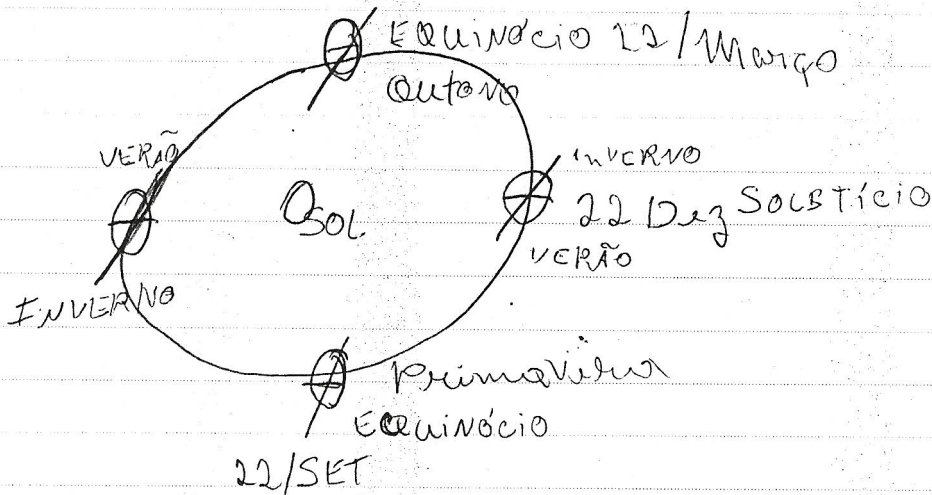 EQUINÓCIO 22/Março
Outono
VERÃO
INVERNO
SOL
22 Dez SOLSTÍCIO
VERÃO
INVERNO
Primavera
EQUINÓCIO
22/SET